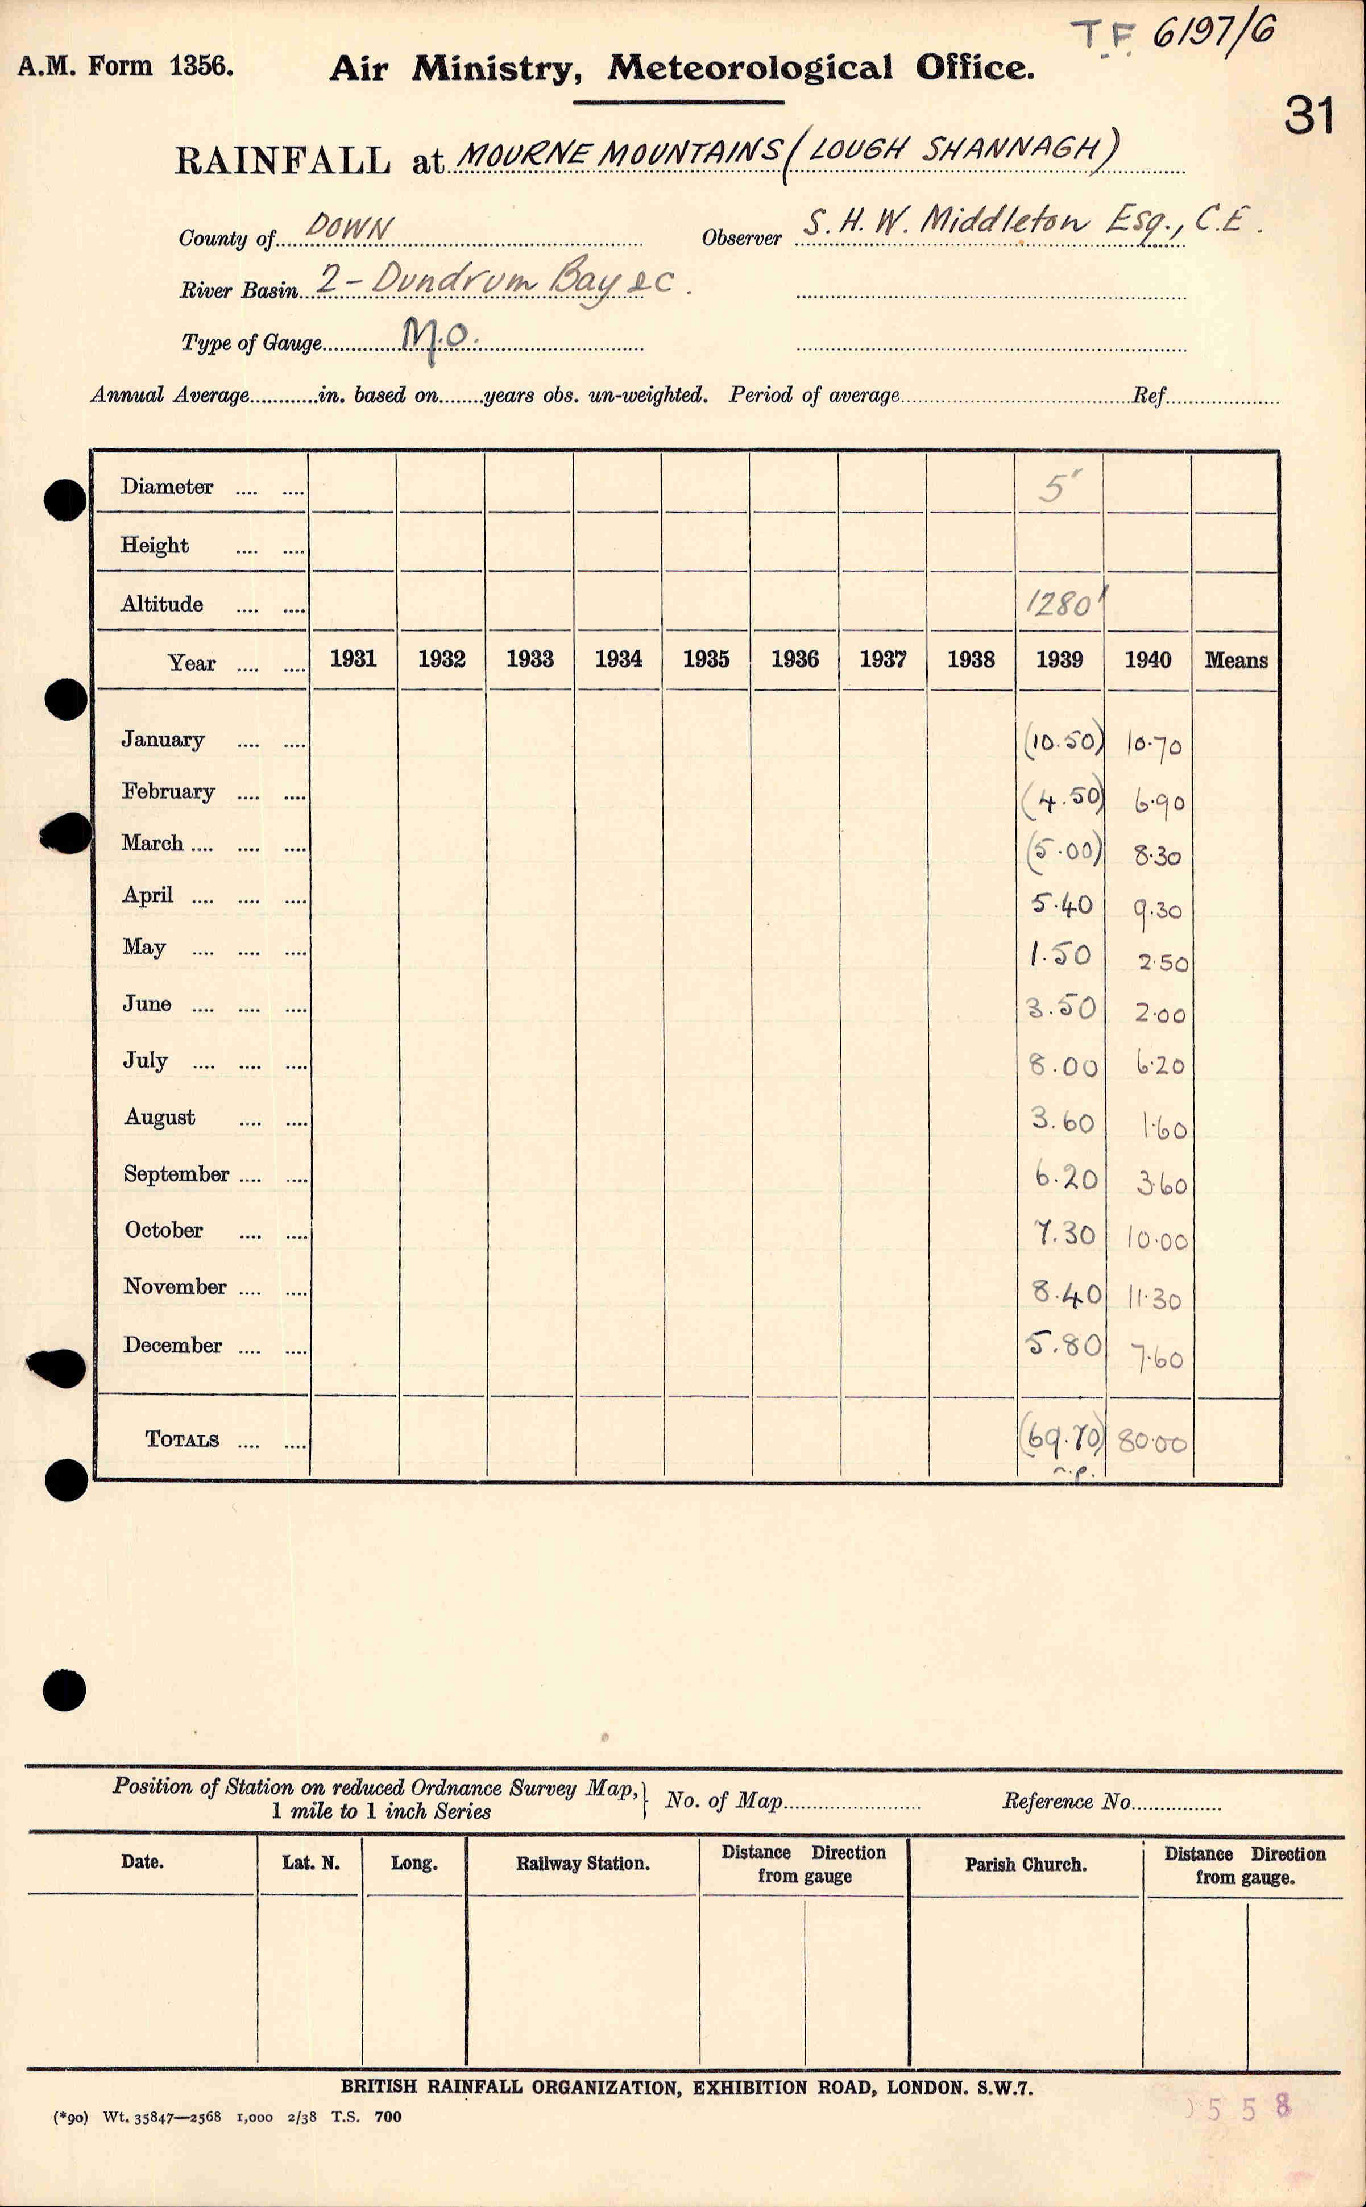 T.F. 6197/6
A.M. Form 1356. Air Ministry, Meteorological Office.
31
RAINFALL at MOURNE MOUNTAINS (LOUGH SHANNAGH)
County of DOWN Observer S. H. W. Middleton Esq., C.E.
River Basin 2 - Dundrum Bay &c.
Type of Gauge M.O.
Annual Average............in. based on........years obs. un-weighted. Period of average........ Ref........
Diameter .... .... 5"
Height .... ....
Altitude .... .... 1280'
Year .... .... 1931 1932 1933 1934 1935 1936 1937 1938 1939 1940 Means
January .... .... (10.50) 10.70
February .... .... (4.50) 6.90
March .... .... .... (5.00) 8.30
April .... .... .... 5.40 9.30
May .... .... .... 1.50 2.50
June .... .... .... 3.50 2.00
July .... .... .... 8.00 6.20
August .... .... 3.60 1.60
September .... .... 6.20 3.60
October .... .... 7.30 10.00
November .... .... 8.40 11.30
December .... .... 5.80 7.60
TOTALS .... .... (69.70) 80.00
n.p.
Position of Station on reduced Ordnance Survey Map, 1 mile to 1 inch Series } No. of Map........ Reference No........
Date. Lat. N. Long. Railway Station. Distance Direction from gauge Parish Church. Distance Direction from gauge.
BRITISH RAINFALL ORGANIZATION, EXHIBITION ROAD, LONDON. S.W.7.
(*90) Wt. 35847—2568 1,000 2/38 T.S. 700
558